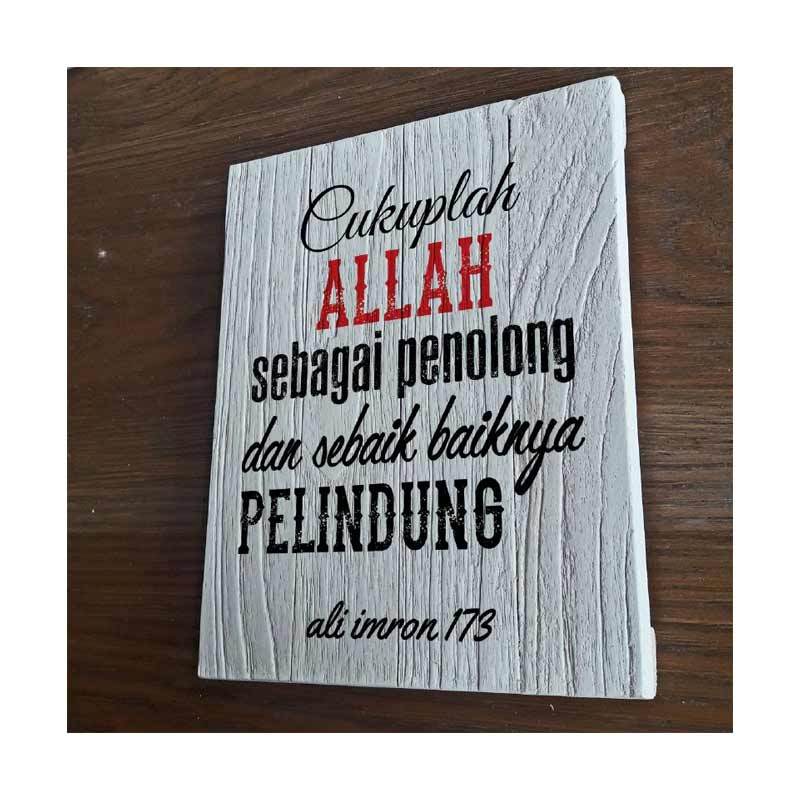 Cukuplah
ALLAH
sebagai penolong
dan sebaik baiknya
PELINDUNG
ali imron 173